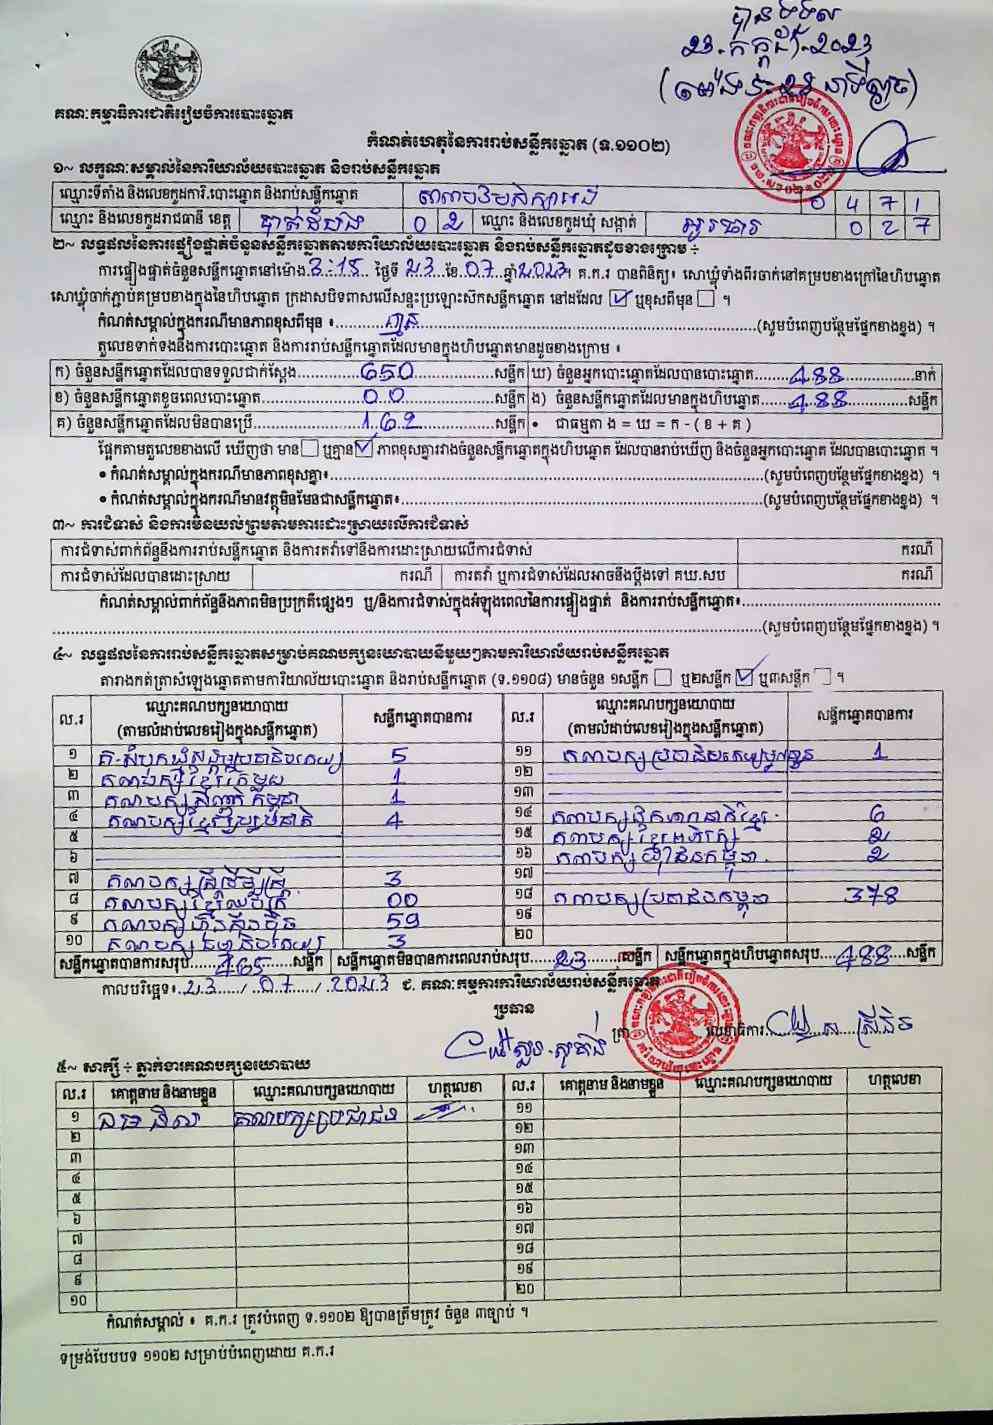 បានទទួល
23.កក្កដា.2023
គណៈកម្មាធិការជាតិរៀបចំការបោះឆ្នោត
កំណត់ហេតុនៃការរាប់សន្លឹកឆ្នោត (ទ.១១០២)
១~ លក្ខណៈសម្គាល់នៃការិយាល័យបោះឆ្នោត និងរាប់សន្លឹកឆ្នោត
ឈ្មោះទីតាំង និងលេខកូដការិ.បោះឆ្នោត និងរាប់សន្លឹកឆ្នោត 0 4 7 1
ឈ្មោះ និងលេខកូដរាជធានី ខេត្ត បាត់ដំបង 0 2 ឈ្មោះ និងលេខកូដឃុំ សង្កាត់ 0 2 7
២~ លទ្ធផលនៃការផ្ទៀងផ្ទាត់ចំនួនសន្លឹកឆ្នោតតាមការិយាល័យបោះឆ្នោត និងរាប់សន្លឹកឆ្នោតដូចខាងក្រោម ÷
ការផ្ទៀងផ្ទាត់ចំនួនសន្លឹកឆ្នោតនៅម៉ោង 3:15 ថ្ងៃទី 23 ខែ 07 ឆ្នាំ 2023 ។ គ.ក.រ បានពិនិត្យ៖ សោឃ្លុំទាំងពីរចាក់នៅគម្របខាងក្រៅនៃហិបឆ្នោត
សោឃ្លុំចាក់ភ្ជាប់គម្របខាងក្នុងនៃហិបឆ្នោត ក្រដាសបិទពាសលើសន្ទះប្រឡោះស៊កសន្លឹកឆ្នោត នៅដដែល ☑ ឬខុសពីមុន ☐ ។
កំណត់សម្គាល់ក្នុងករណីមានភាពខុសពីមុន ៖ គ្មាន (សូមបំពេញបន្ថែមផ្នែកខាងខ្នង) ។
តួលេខទាក់ទងនឹងការបោះឆ្នោត និងការរាប់សន្លឹកឆ្នោតដែលមានក្នុងហិបឆ្នោតមានដូចខាងក្រោម ៖
ក) ចំនួនសន្លឹកឆ្នោតដែលបានទទួលជាក់ស្តែង 650 សន្លឹក ឃ) ចំនួនអ្នកបោះឆ្នោតដែលបានបោះឆ្នោត 488 នាក់
ខ) ចំនួនសន្លឹកឆ្នោតខូចពេលបោះឆ្នោត 00 សន្លឹក ង) ចំនួនសន្លឹកឆ្នោតដែលមានក្នុងហិបឆ្នោត 488 សន្លឹក
គ) ចំនួនសន្លឹកឆ្នោតដែលមិនបានប្រើ 162 សន្លឹក • ជាធម្មតា ង = ឃ = ក - ( ខ + គ )
ផ្អែកតាមតួលេខខាងលើ ឃើញថា មាន ☐ ឬគ្មាន ☑ ភាពខុសគ្នារវាងចំនួនសន្លឹកឆ្នោតក្នុងហិបឆ្នោត ដែលបានរាប់ឃើញ និងចំនួនអ្នកបោះឆ្នោត ដែលបានបោះឆ្នោត ។
• កំណត់សម្គាល់ក្នុងករណីមានភាពខុសគ្នា៖ (សូមបំពេញបន្ថែមផ្នែកខាងខ្នង) ។
• កំណត់សម្គាល់ក្នុងករណីមានវត្ថុមិនមែនជាសន្លឹកឆ្នោត៖ (សូមបំពេញបន្ថែមផ្នែកខាងខ្នង) ។
៣~ ការជំទាស់ និងការមិនយល់ព្រមតាមការដោះស្រាយលើការជំទាស់
ការជំទាស់ពាក់ព័ន្ធនឹងការរាប់សន្លឹកឆ្នោត និងការតវ៉ាទៅនឹងការដោះស្រាយលើការជំទាស់ ករណី
ការជំទាស់ដែលបានដោះស្រាយ ករណី ការតវ៉ា ឬការជំទាស់ដែលអាចនឹងប្តឹងទៅ គឃ.សប ករណី
កំណត់សម្គាល់ពាក់ព័ន្ធនឹងភាពមិនប្រក្រតីផ្សេងៗ ឬ/និងការជំទាស់ក្នុងអំឡុងពេលនៃការផ្ទៀងផ្ទាត់ និងការរាប់សន្លឹកឆ្នោត៖
(សូមបំពេញបន្ថែមផ្នែកខាងខ្នង) ។
៤~ លទ្ធផលនៃការរាប់សន្លឹកឆ្នោតសម្រាប់គណបក្សនយោបាយនីមួយៗតាមការិយាល័យរាប់សន្លឹកឆ្នោត
តារាងកត់ត្រាសំឡេងឆ្នោតតាមការិយាល័យបោះឆ្នោត និងរាប់សន្លឹកឆ្នោត (ទ.១១០៨) មានចំនួន ១សន្លឹក ☐ ឬ២សន្លឹក ☑ ឬ៣សន្លឹក ☐ ។
ល.រ ឈ្មោះគណបក្សនយោបាយ (តាមលំដាប់លេខរៀងក្នុងសន្លឹកឆ្នោត) សន្លឹកឆ្នោតបានការ ល.រ ឈ្មោះគណបក្សនយោបាយ (តាមលំដាប់លេខរៀងក្នុងសន្លឹកឆ្នោត) សន្លឹកឆ្នោតបានការ
១ 5 ១១ 1
២ គណបក្ស ខ្មែររួបរួម 1 ១២
៣ 1 ១៣
៤ គណបក្សខ្មែររួបរួមជាតិ 4 ១៤ 6
៥ ១៥ 2
៦ ១៦ 2
៧ គណបក្សស្ត្រីដើម្បីស្ត្រី 3 ១៧
៨ 00 ១៨ គណបក្សប្រជាជនកម្ពុជា 378
៩ គណបក្សហ៊្វុនស៊ិនប៉ិច 59 ១៩
១០ 3 ២០
សន្លឹកឆ្នោតបានការសរុប 465 សន្លឹក សន្លឹកឆ្នោតមិនបានការពេលរាប់សរុប 23 សន្លឹក សន្លឹកឆ្នោតក្នុងហិបឆ្នោតសរុប 488 សន្លឹក
កាលបរិច្ឆេទ៖ 23 / 07 / 2023 ជ. គណៈកម្មការការិយាល័យរាប់សន្លឹកឆ្នោត
ប្រធាន
ត្រា លេខាធិការ
៥~ សាក្សី ÷ ភ្នាក់ងារគណបក្សនយោបាយ
ល.រ គោត្តនាម និងនាមខ្លួន ឈ្មោះគណបក្សនយោបាយ ហត្ថលេខា ល.រ គោត្តនាម និងនាមខ្លួន ឈ្មោះគណបក្សនយោបាយ ហត្ថលេខា
១ គណបក្សប្រជាជន ១១
២ ១២
៣ ១៣
៤ ១៤
៥ ១៥
៦ ១៦
៧ ១៧
៨ ១៨
៩ ១៩
១០ ២០
កំណត់សម្គាល់ ៖ គ.ក.រ ត្រូវបំពេញ ទ.១១០២ ឱ្យបានត្រឹមត្រូវ ចំនួន ៣ច្បាប់ ។
ទម្រង់បែបបទ ១១០២ សម្រាប់បំពេញដោយ គ.ក.រ